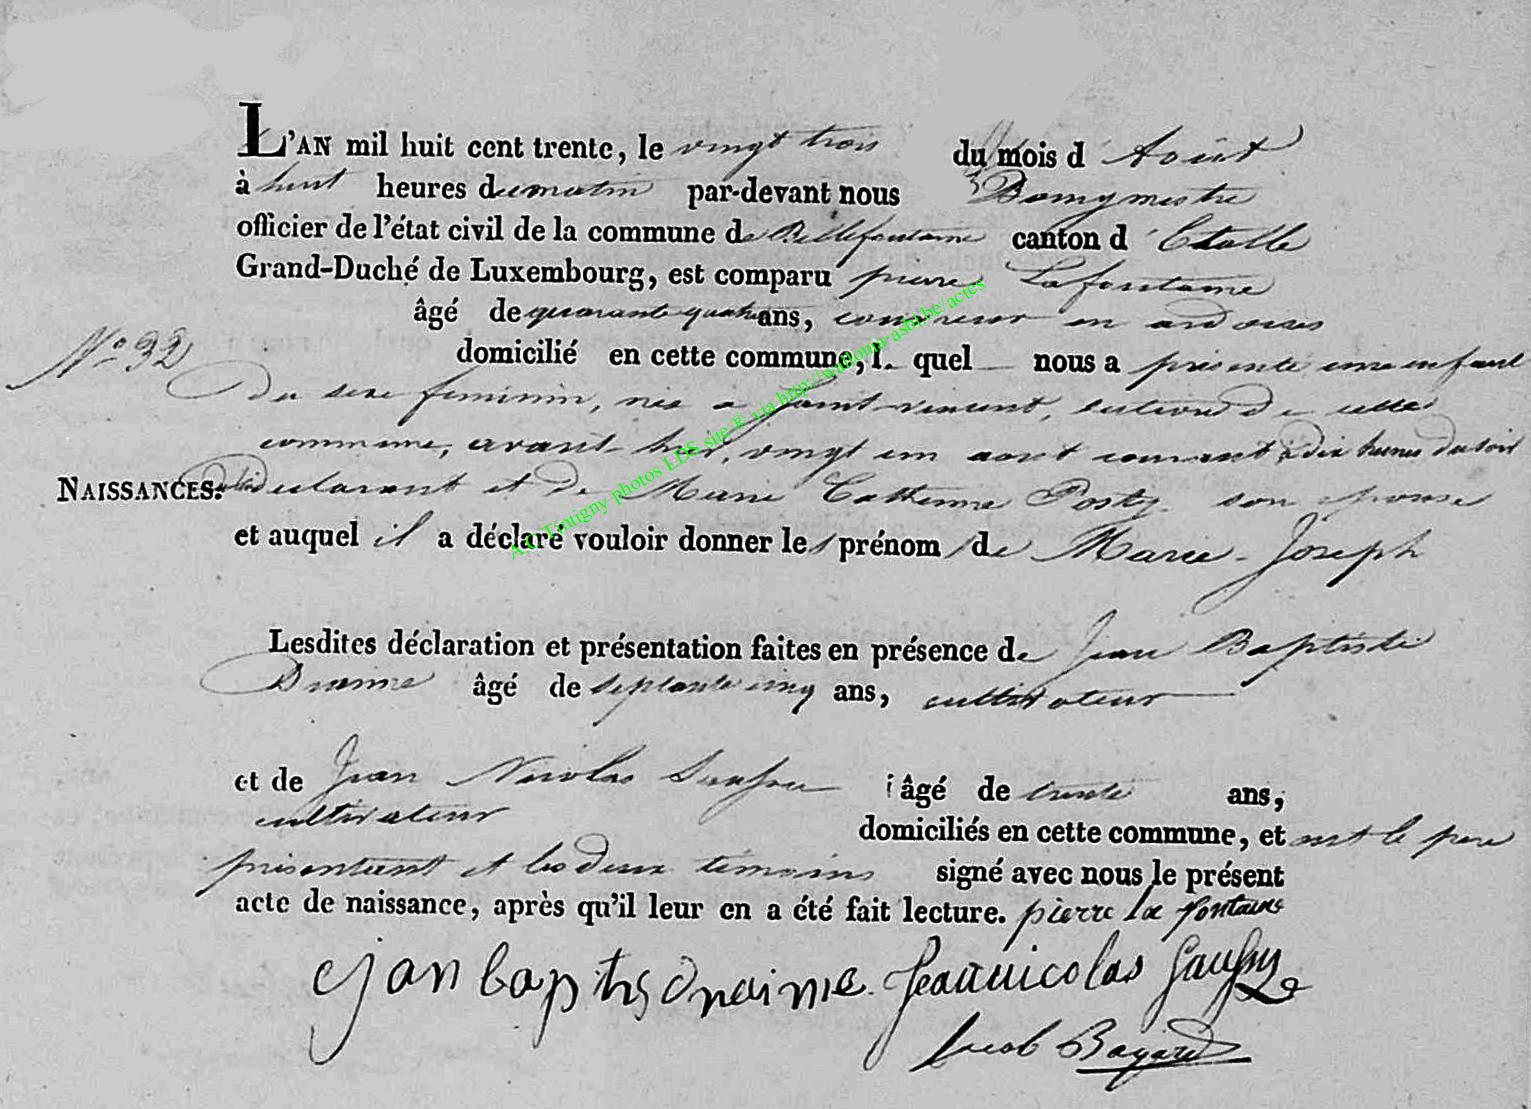 L'AN mil huit cent trente, le vingt trois du mois d'Août
à huit heures du matin par-devant nous Bourgmestre
officier de l'état civil de la commune de Bellefontaine canton d'Etalle
Grand-Duché de Luxembourg, est comparu pierre Lafontaine
âgé de quarante quatre ans, couvreur en ardoises
N.° 32
domicilié en cette commune, l. quel nous a présenté une enfant
du sexe féminin, née a Saint-vincent, section de cette
commune, avant-hier, vingt un aout courant à dix heures du soir
NAISSANCES. déclarant et de Marie Catherine son épouse
et auquel il a déclaré vouloir donner les prénoms de Marie-Joseph
Lesdites déclaration et présentation faites en présence de Jean Baptiste
âgé de septante cinq ans, cultivateur
et de Jean Nicolas âgé de trente ans,
cultivateur
domiciliés en cette commune, et ont le pere
présentent et les deux témoins signé avec nous le présent
acte de naissance, après qu'il leur en a été fait lecture. pierre la fontaine
jan baptis Jean nicolas
Jacob Bayard
A.C Tintigny photos LDS site ® via http://wallonia-asbl.be/actes